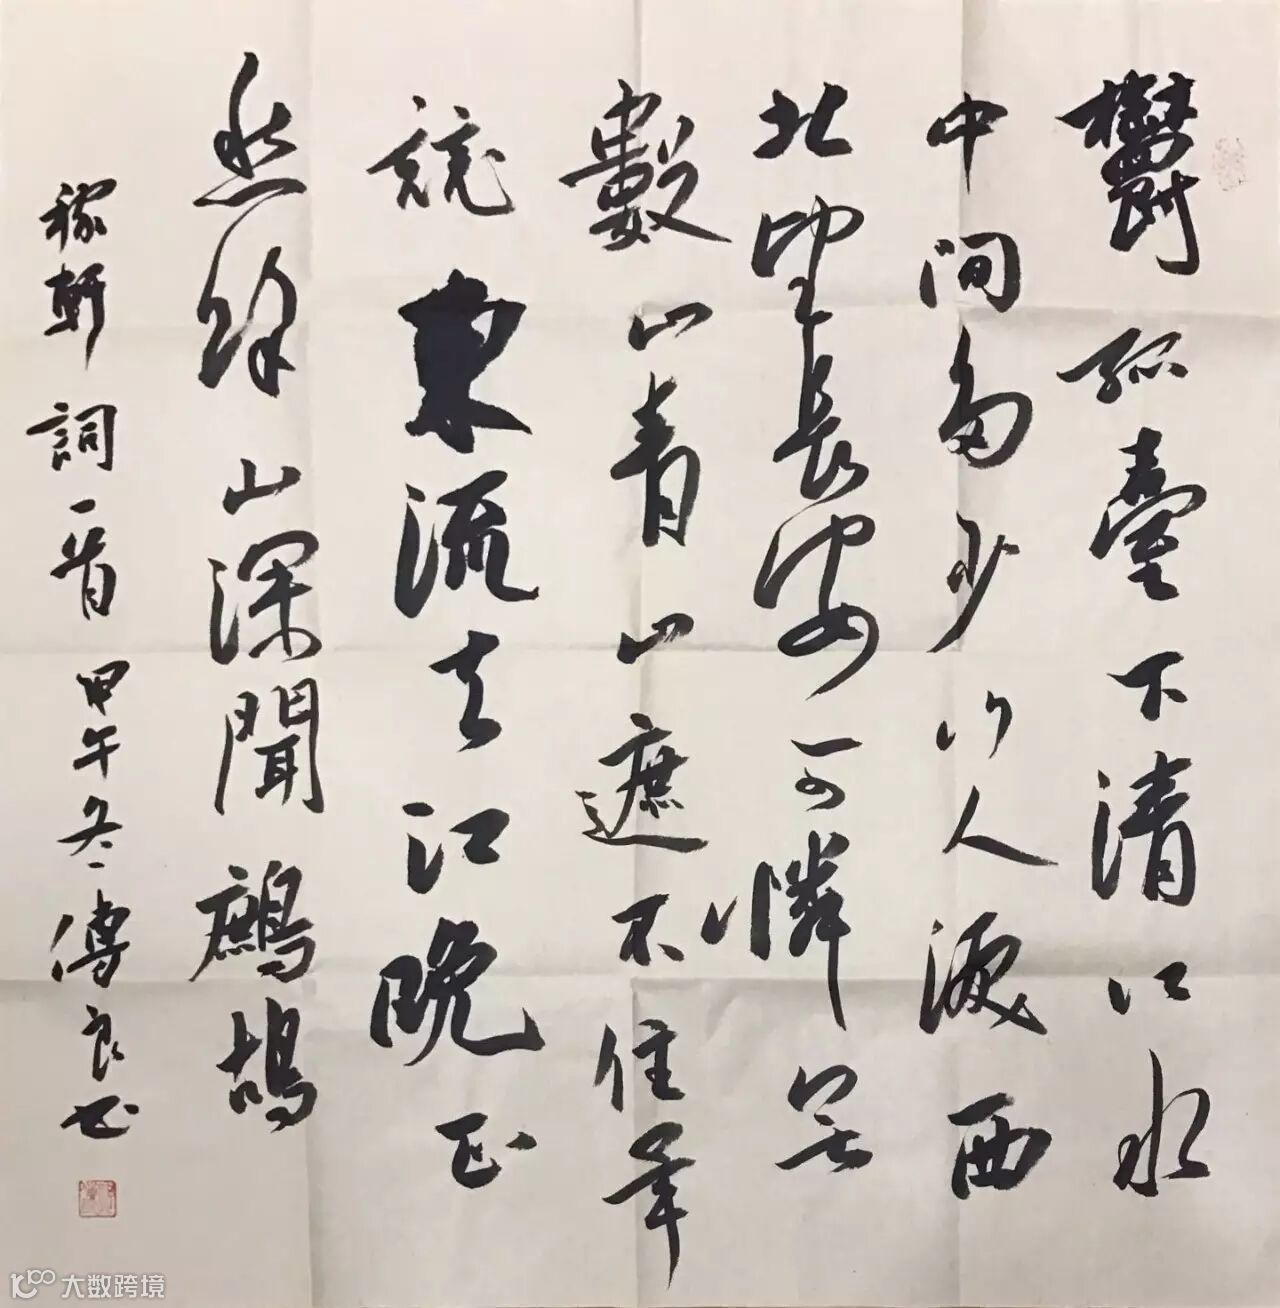 鬱孤臺下清江水
中間多少行人淚西
北望長安可憐無
數山青山遮不住畢
競東流去江晚正
愁餘山深聞鷓鴣
稼軒詞一首甲午冬傅良书
大数跨境